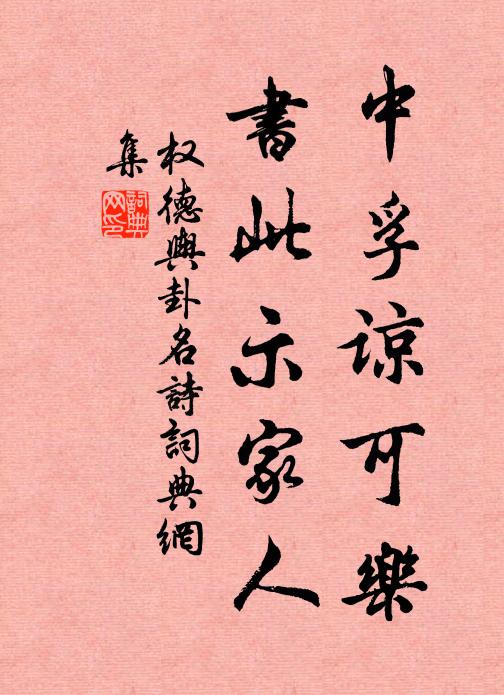 中孚諒可樂
書此示家人
权德輿卦名詩詞典網
集
詞典
网印